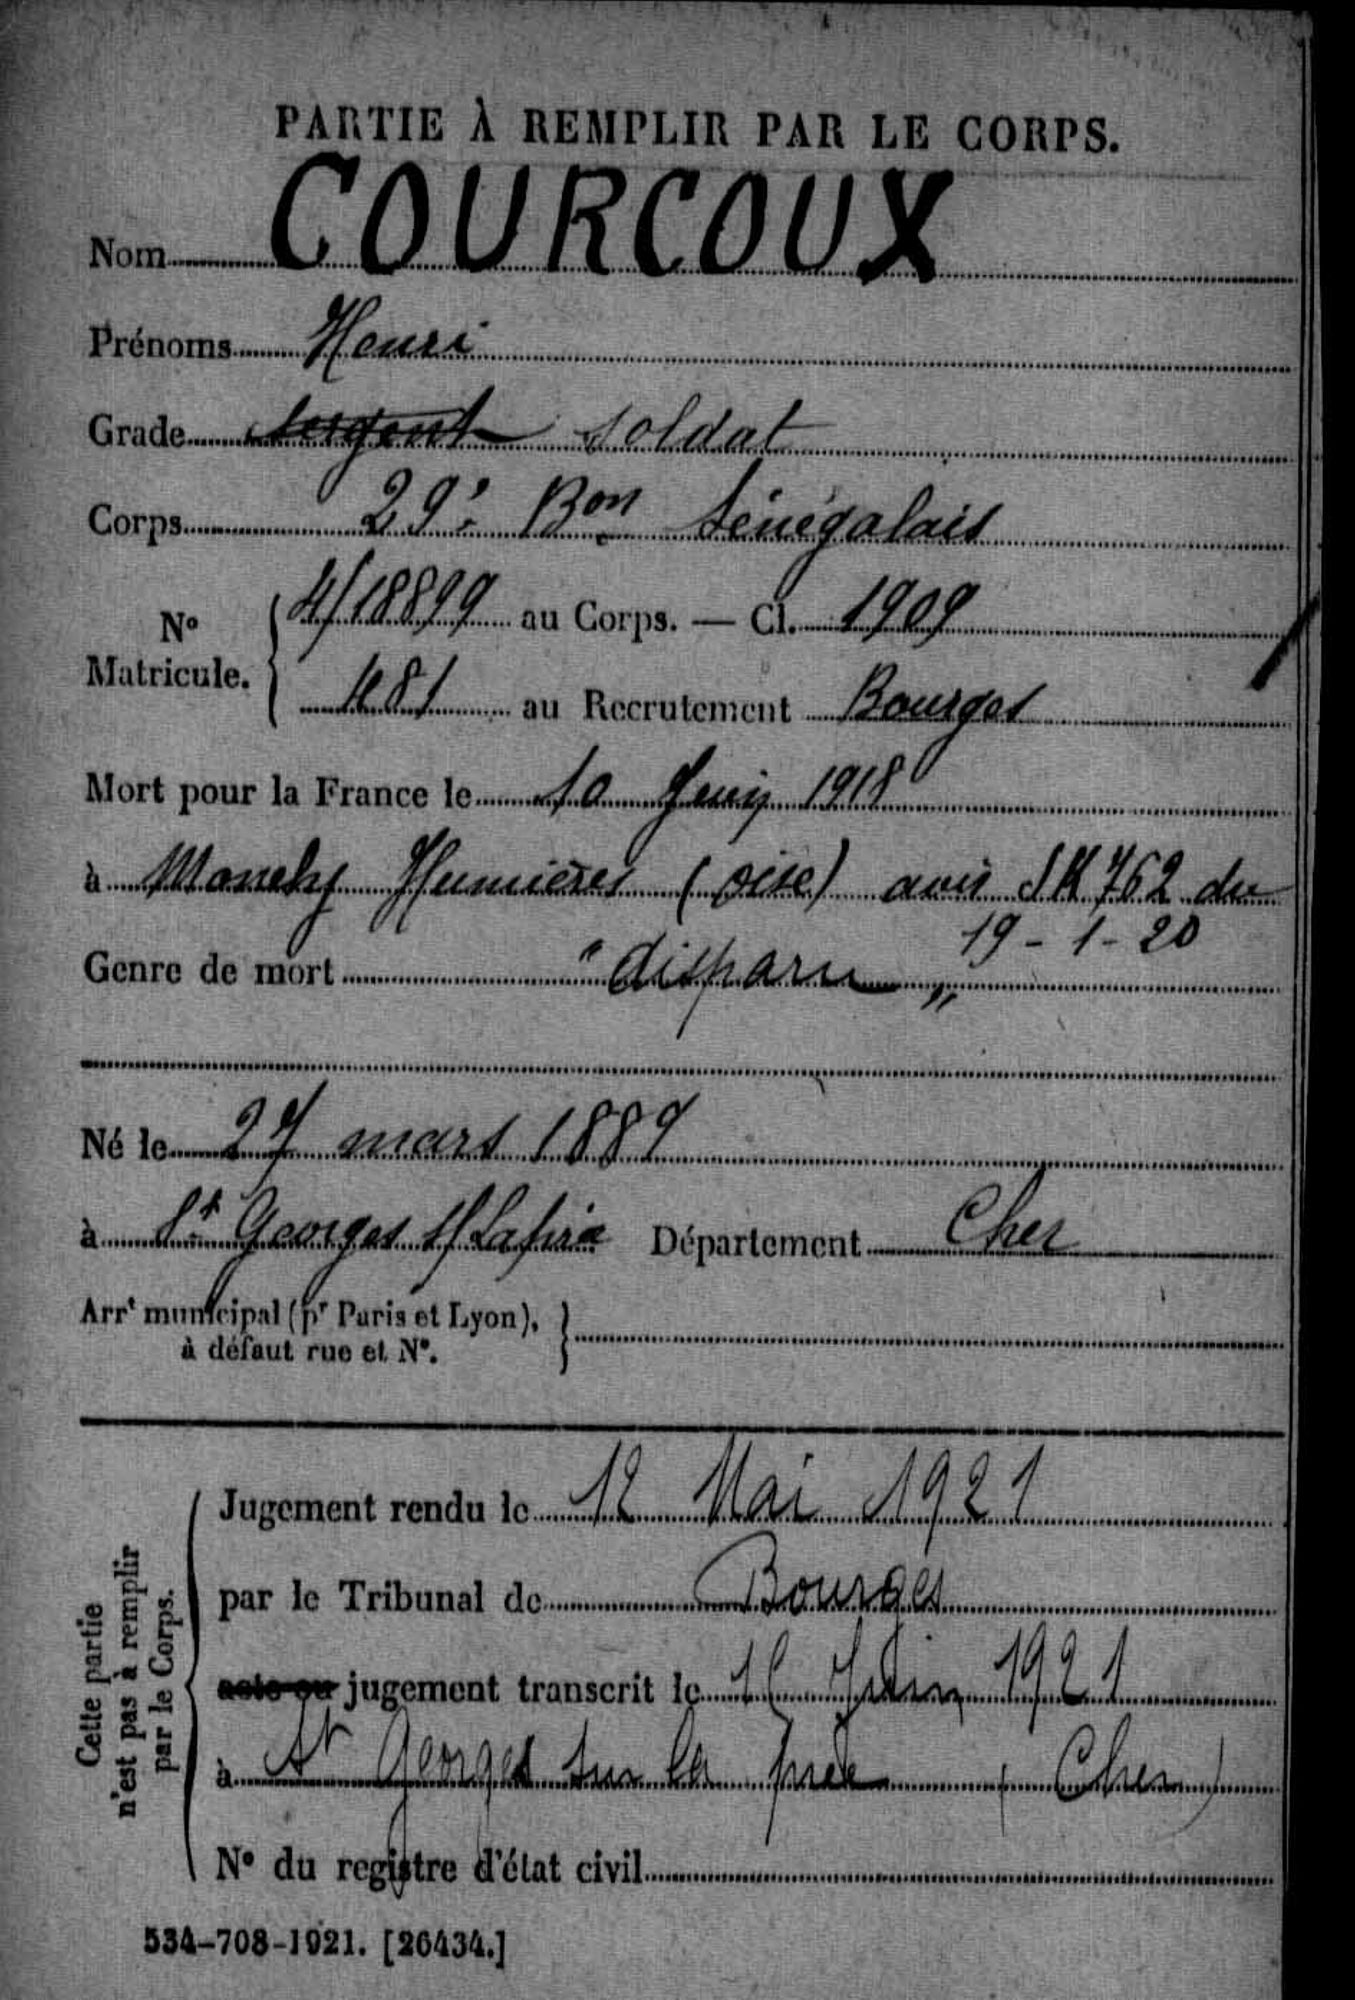 PARTIE À REMPLIR PAR LE CORPS.
Nom COURCOUX
Prénoms Henri
Grade sergent soldat
Corps 29e Bon Sénégalais
No Matricule. 4/18899 au Corps. — Cl. 1909
1081 au Recrutement Bourges
Mort pour la France le 10 Juin 1918
à Monchy Humières (oise) avis SK 762 du
19-1-20
Genre de mort "disparu"
Né le 27 mars 1889
à St Georges s/ Département Cher
Arrt municipal (pr Paris et Lyon),
à défaut rue et No.
Cette partie
n'est pas à remplir
par le Corps.
Jugement rendu le 12 Mai 1921
par le Tribunal de Bourges
acte ou jugement transcrit le Juin 1921
à St Georges sur la prée (Cher)
No du registre d'état civil
534-708-1921. [26434.]